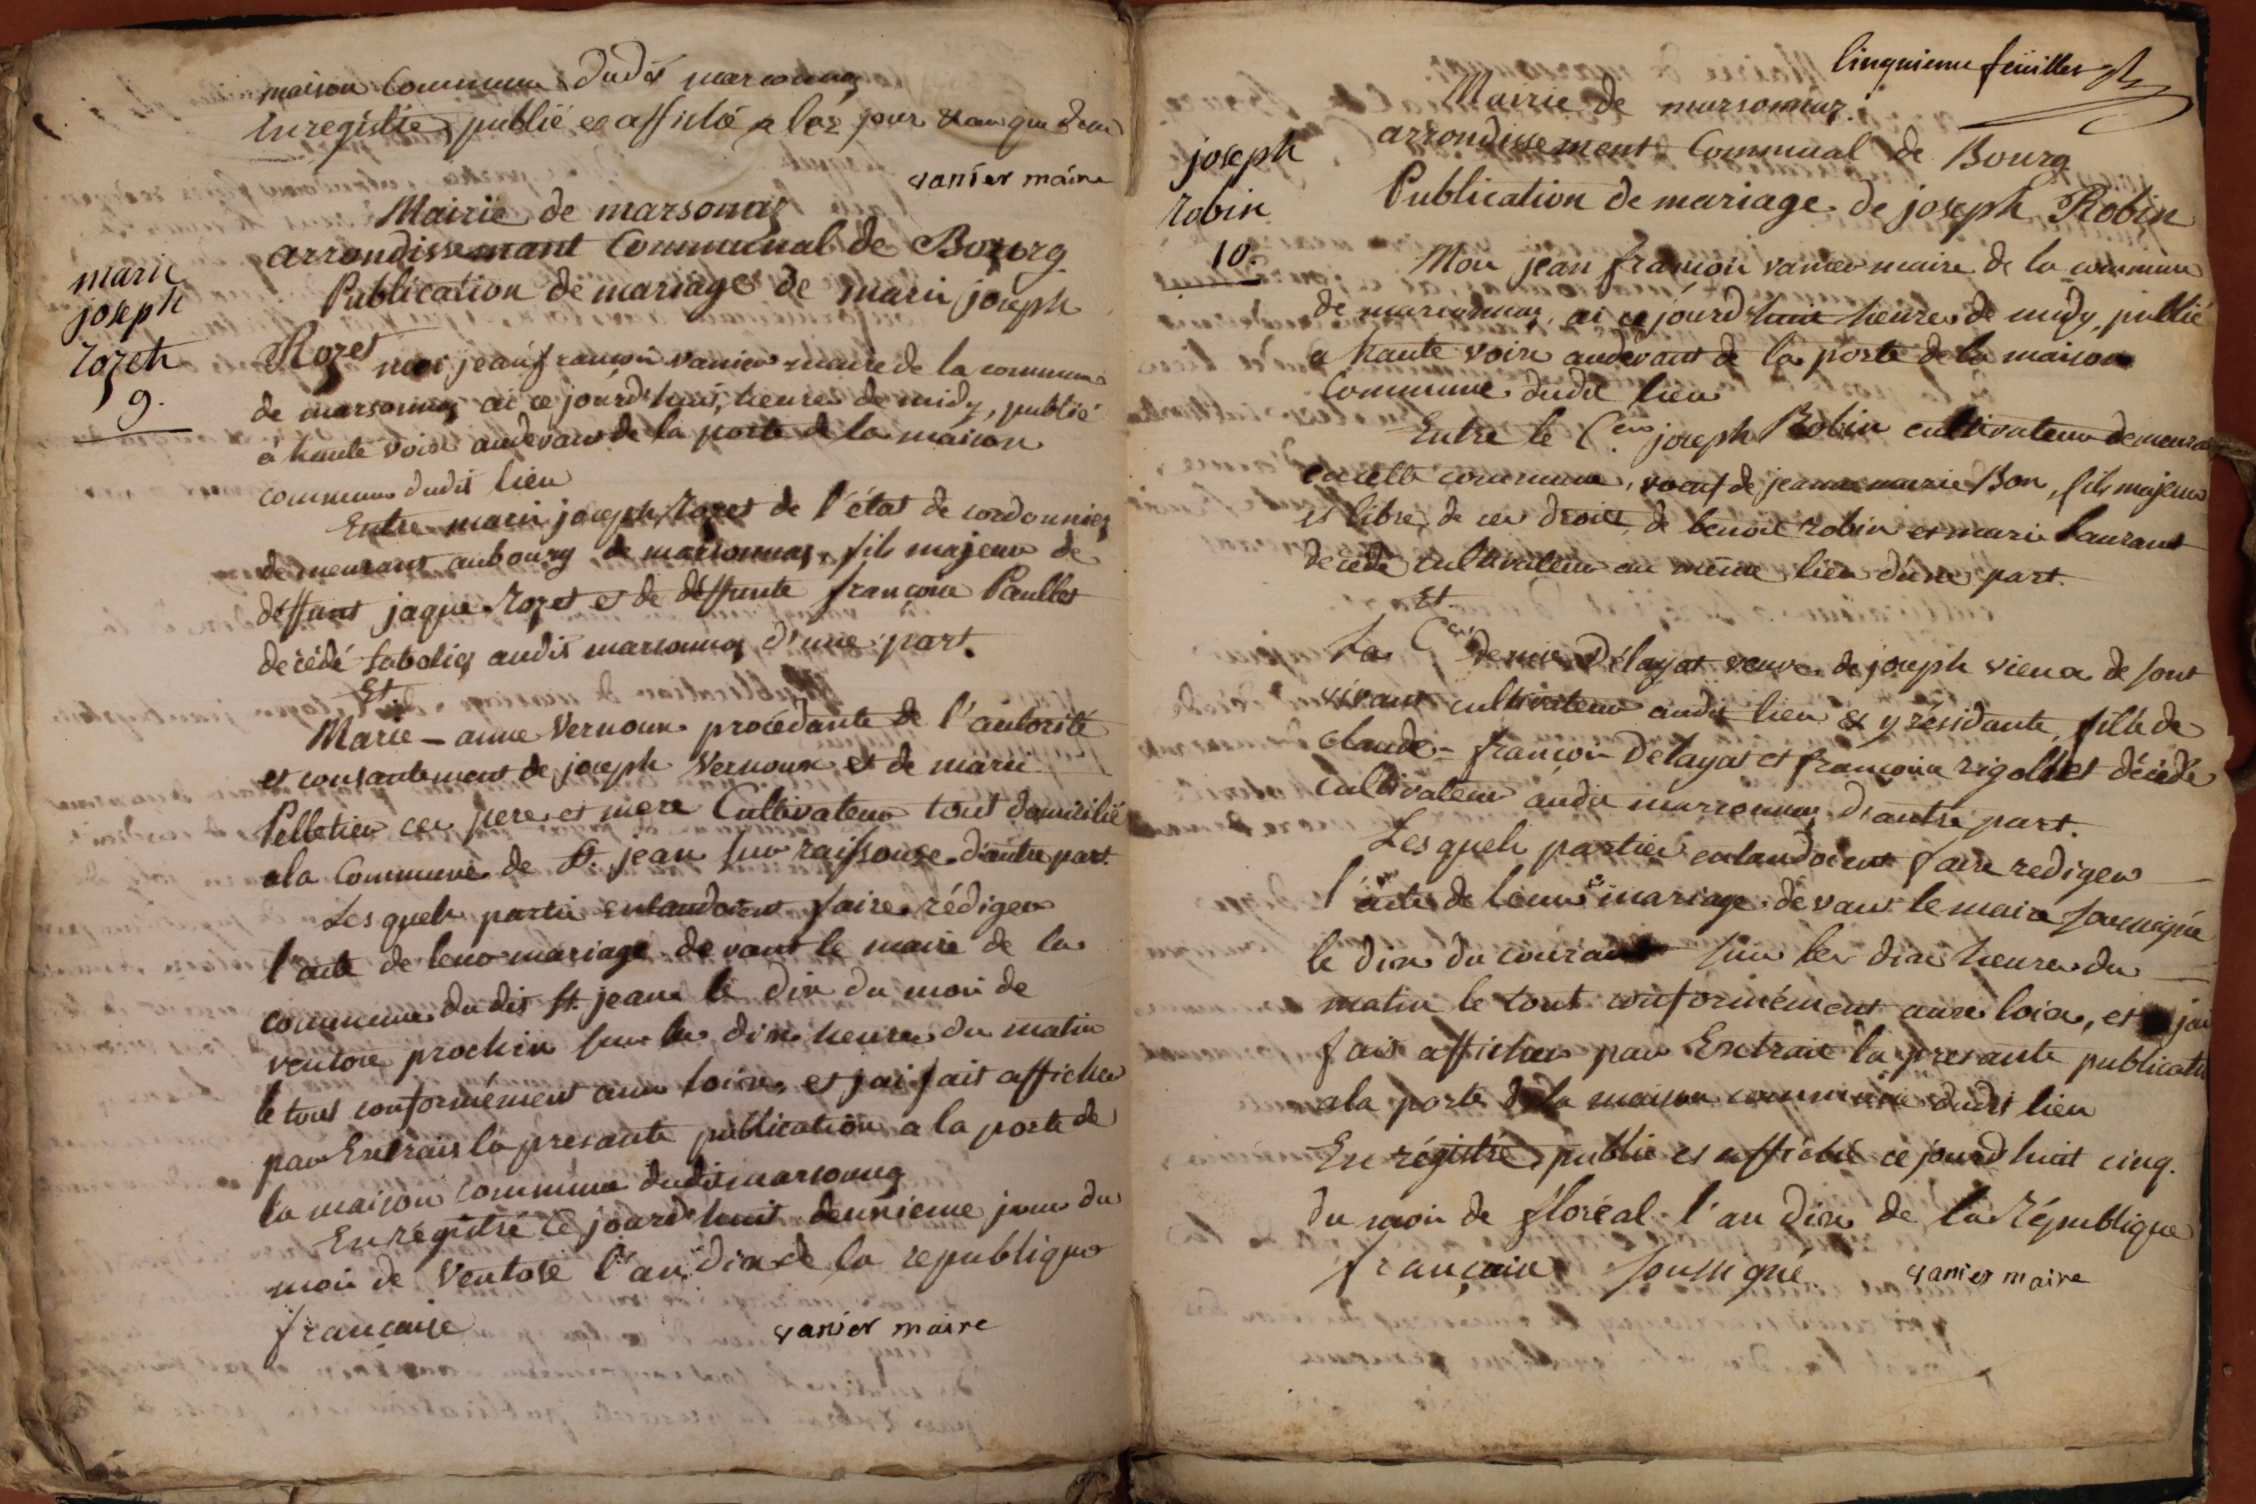 maison Commune dudit marsonnaz
Enregistre publié et affiché les jour et an que
vanier maire
Mairie de marsonaz
arrondissemant Communal de Bourg
Publication de mariage de marie joseph
Rozet
marie
joseph
rozet
9.
moi jean françois vanier maire de la commune
de marsonnaz ai ce jourd'huit, heure de midy, publié
a haute voix audevant de la porte de la maison
commune dudit lieu
Entre marie joseph rozet de l'état de cordonnier
demeurant aubourg de marsonnaz, fils majeur de
deffunt jaque rozet et de deffunte françoise Paulles
decédé audit marsonnaz d'une part.
Et.
Marie-anne Vernoux procedante de l'autorité
et consantement de joseph Vernoux et de marie
Pelletier ces pere et mere Cultivateur tout domicilié
ala Commune de St. jean sur raissouze d'autre part.
Lesquels partie entandoient faire rédiger
l'acte de leur mariage devant le maire de la
commune dudit St. jean le dix du mois de
ventose prochin sur les dix heures du matin
le tout conformément aux loix, et jai fait afficher
par Extrais la presante publication a la porte de
la maison commune dudit marsonnaz
Enrégitré ce jourd'huit deuxieme jour du
mois de Ventose l'an dix de la republique
française
vanier maire
Cinquieme feuillet
Mairie de marsonnaz
arrondissement Communal de Bourg
Publication de mariage de joseph Robin
joseph
robin
10.
Moi jean françois vanier maire de la commune
de marsonnaz, ai ce jourd'huit heure de midy, publié
a haute voix audevant de la porte de la maison
Commune dudit lieu
Entre le Cen joseph Robin cultivateur demeurant
en cette commune, veuf de jeanne marie Bon, fils majeur
et libre de ces droits de benoit robin et marie Laurant
decédé cultivateur au même lieu d'une part.
Et.
La Cene Delayat veuve de joseph de sont
vivant cultivateur audit lieu et y résidante, fille de
claude-françois Delayat et françoise rigollet décédé
cultivateur audit marsonnaz d'autre part.
Lesquels partie entandoient faire rediger
l'acte de leur mariage devant le maire soussigné
le dix du courant sur les dix heures du
matin le tout conformément aux loix, et jai
fait afficher par Extrait la presante publication
ala porte de la maison commune dudit lieu
Enrégistré, publié et affiché ce jourd'huit cinq.
du mois de floréal l'an dix de la République
française soussigné.
vanier maire